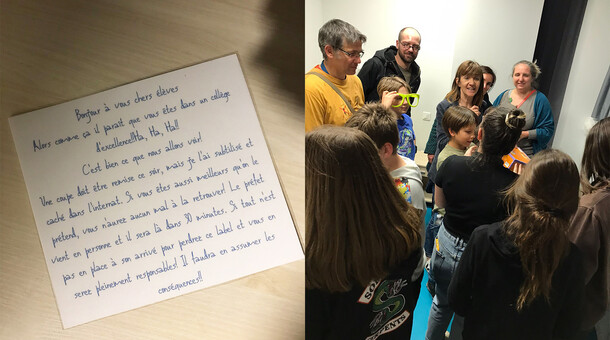 Bonjour à vous chers élèves
Alors comme ça il parait que vous êtes dans un collège
d'excellence!Ha, Ha, Ha!!
C'est bien ce que nous allons voir!
Une coupe doit être remise ce soir, mais je l'ai subtilisé et
caché dans l'internat. Si vous êtes aussi meilleurs qu'on le
prétend, vous n'aurez aucun mal à la retrouver! Le préfet
vient en personne et il sera là dans 30 minutes. Si tout n'est
pas en place à son arrivé pour perdret ce label et vous en
seret pleinement responsables! Il faudra en assumer les
conséquences!!
SERPENTS